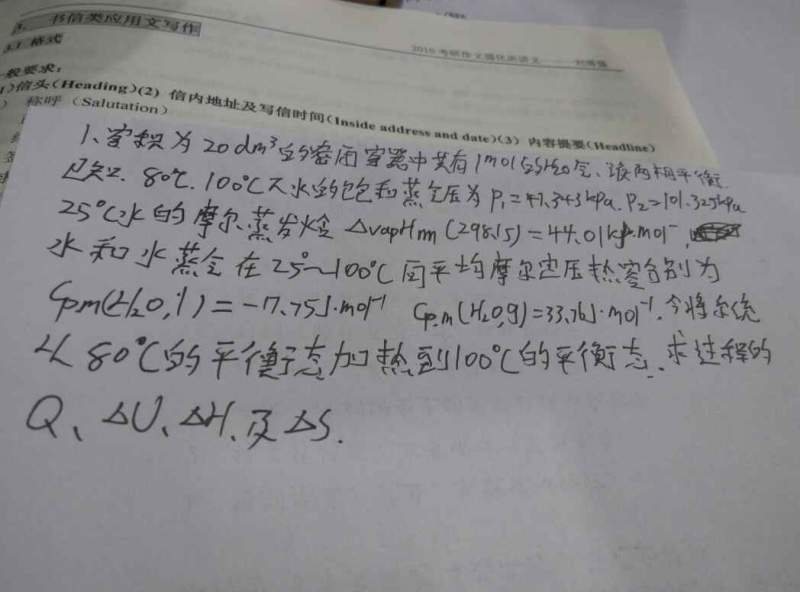 3. 书信类应用文写作
2016考研作文强化班讲义
3.1 格式
一般要求:
(1)信头(Heading)(2) 信内地址及写信时间(Inside address and date)(3) 内容提要(Headline)
称呼 (Salutation)
1、容积为20dm³的密闭容器中共有1mol的H2O气、液两相平衡.
已知. 80℃. 100℃下水的饱和蒸气压为 P₁=47.343kPa. P₂=101.325kPa
25℃水的摩尔蒸发焓 ΔvapHm (298.15)=44.01kJ·mol⁻,
水和水蒸气在25°~100℃间平均摩尔定压热容分别为
Cp.m(H2O,l)=-7.75J·mol⁻¹ Cp.m(H2O,g)=33.76J·mol⁻¹. 今将系统
从80℃的平衡态加热到100℃的平衡态. 求过程的
Q、ΔU、ΔH、及ΔS.